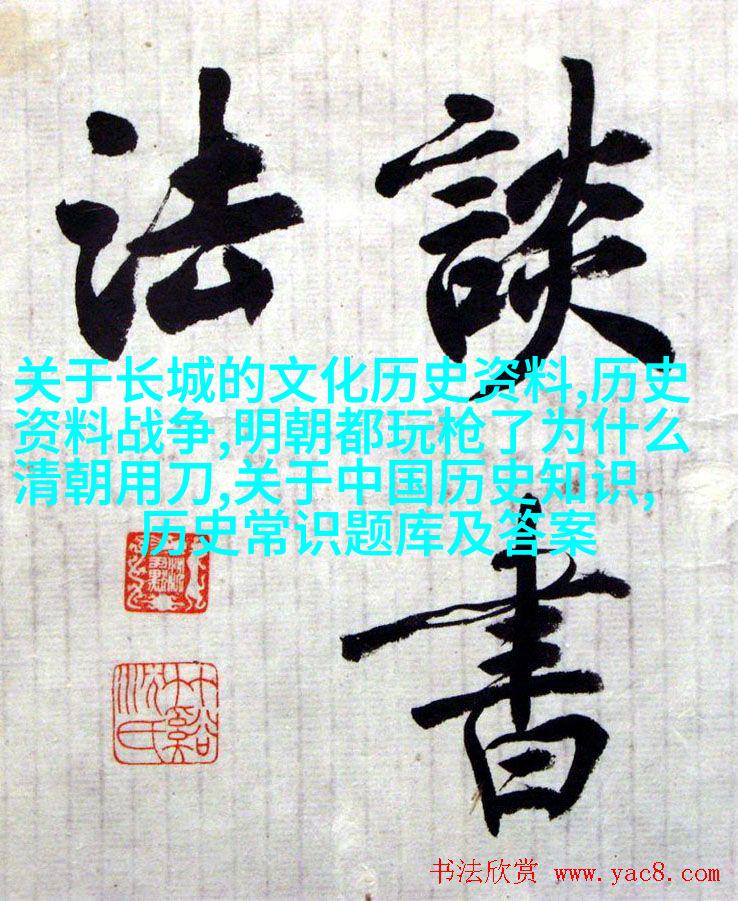 談書
法
关于长城的文化历史资料,历史
资料战争,明朝都玩枪了为什么
清朝用刀,关于中国历史知识,
历史常识题库及答案
书法欣赏 www.yac8.com